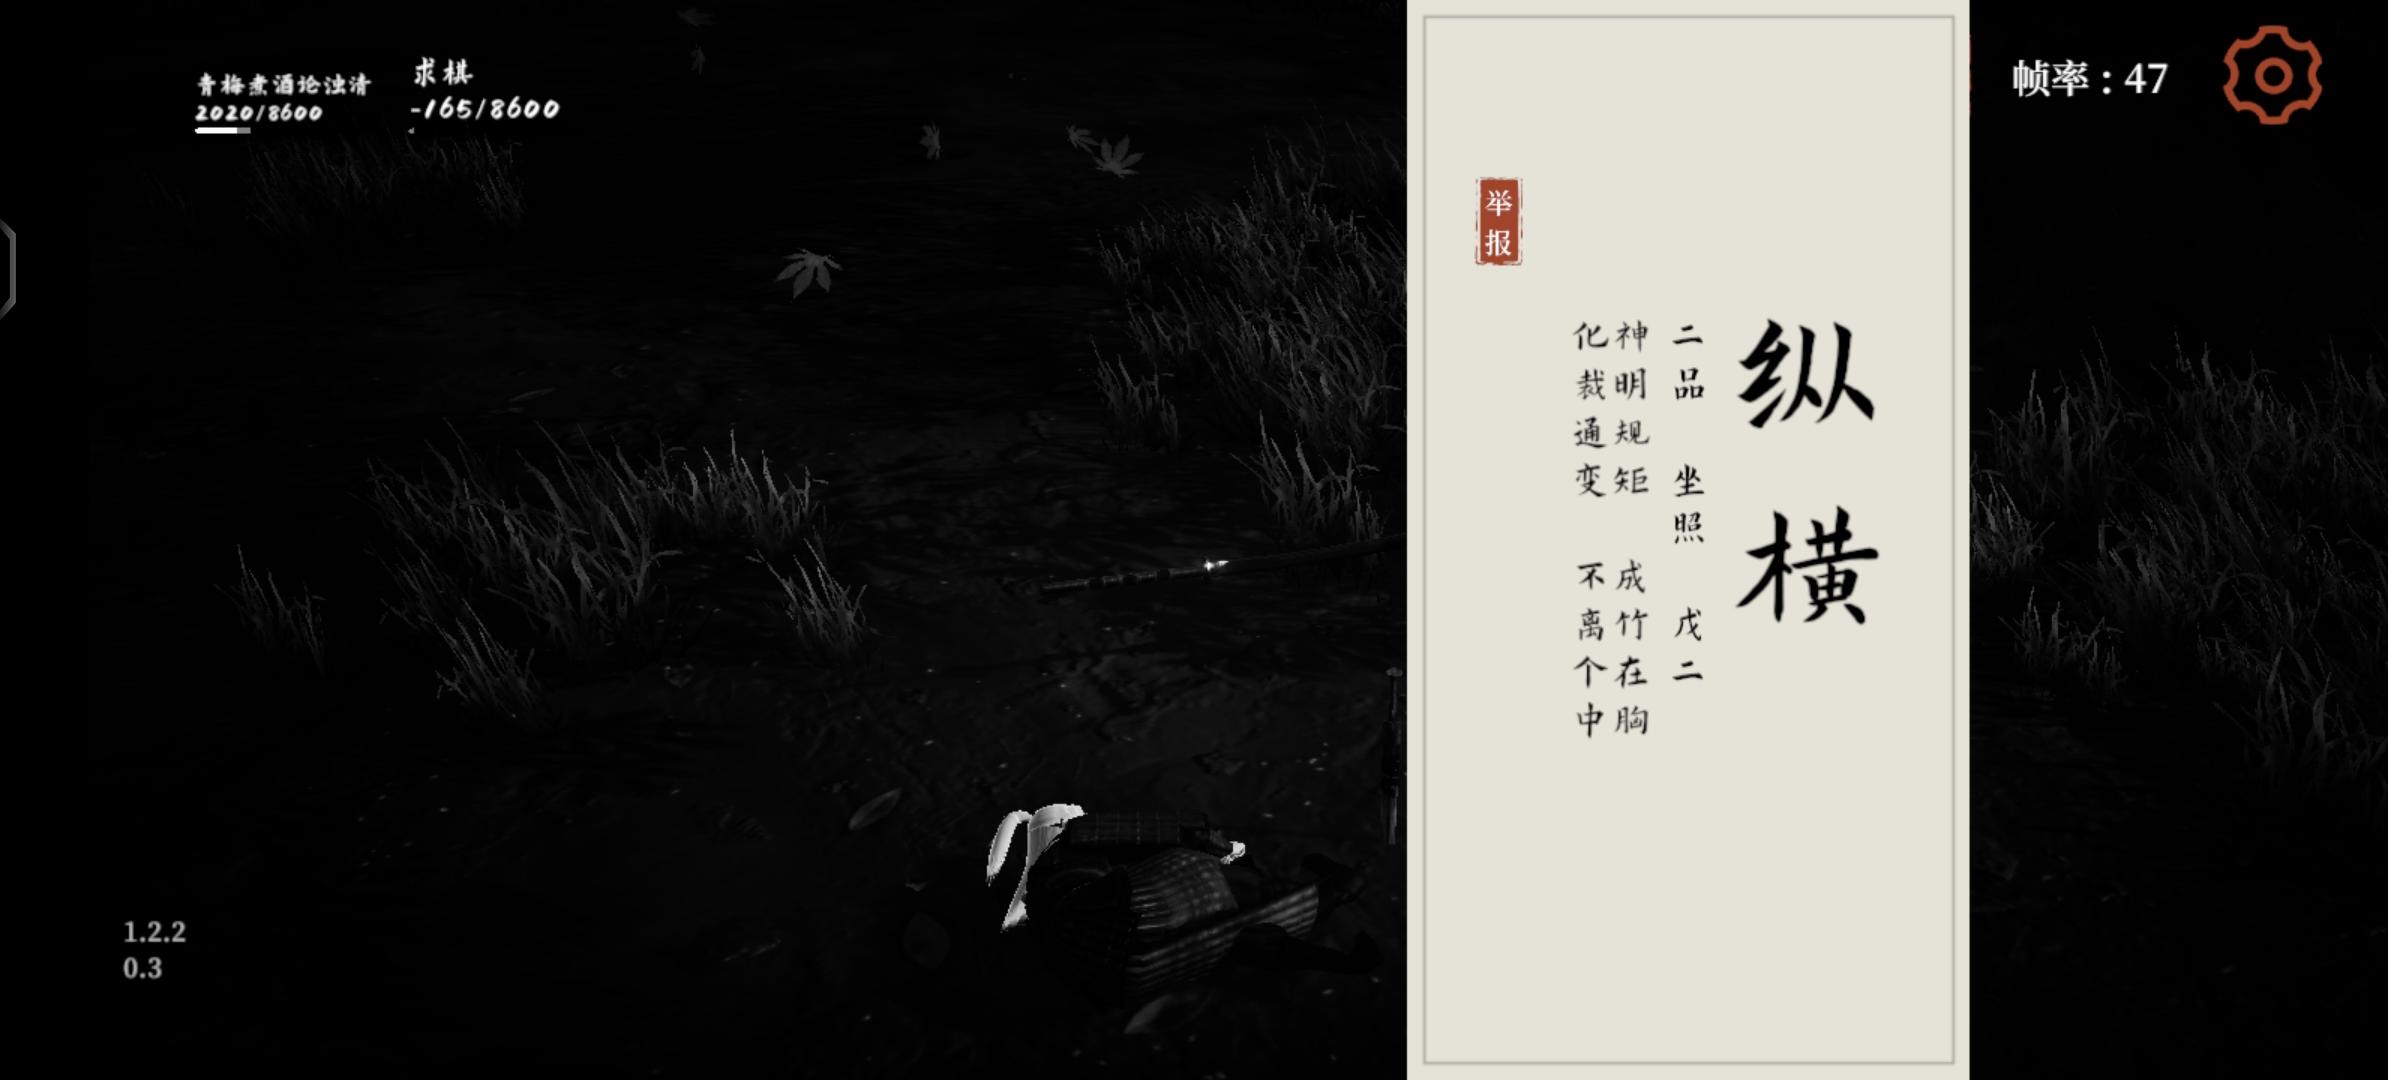 青梅煮酒论浊清
2020/8600
求棋
-165/8600
帧率：47
纵横
二品 坐照 戊二
神明规矩 成竹在胸
化裁通变 不离个中
举报
1.2.2
0.3